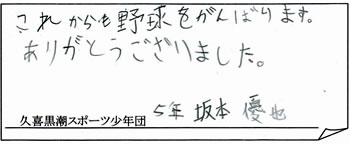 これからも野球をがんばります。
ありがとうございました。
5年 坂本 優也
久喜黒潮スポーツ少年団